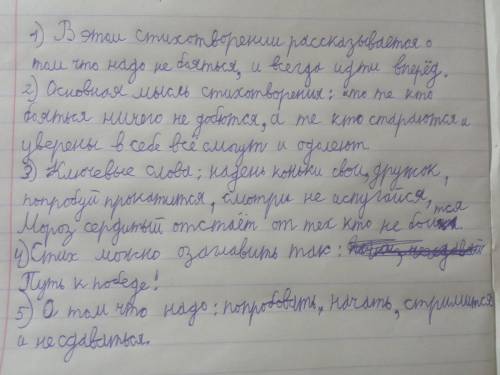 1) В этом стихотворении рассказывается о
том что надо не бояться, и всегда идти вперёд.
2) Основная мысль стихотворения: что те кто
бояться ничего не добются, а те кто стараются и
уверены в себе всё смогут и одолеют
3) Ключевые слова; надень коньки свои, дружок,
попробуй прокатится, смотри не испугайся,
Мороз сердитый отстаёт от тех кто не боится
4) Стих можно озаглавить так:
Путь к победе!
5) О том что надо: попробовать, начать, стримится
и несдаваться.